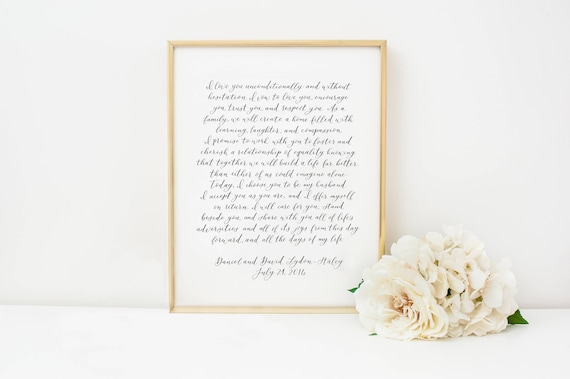 I love you unconditionally and without
hesitation. I vow to love you, encourage
you, trust you, and respect you. As a
family, we will create a home filled with
learning, laughter, and compassion.
I promise to work with you to foster and
cherish a relationship of equality knowing
that together we will build a life far better
than either of us could imagine alone.
Today, I choose you to be my husband.
I accept you as you are, and I offer myself
in return. I will care for you, stand
beside you, and share with you all of life's
adversities and all of its joys from this day
forward, and all the days of my life.
Daniel and David Lydon-Staley
July 29, 2016